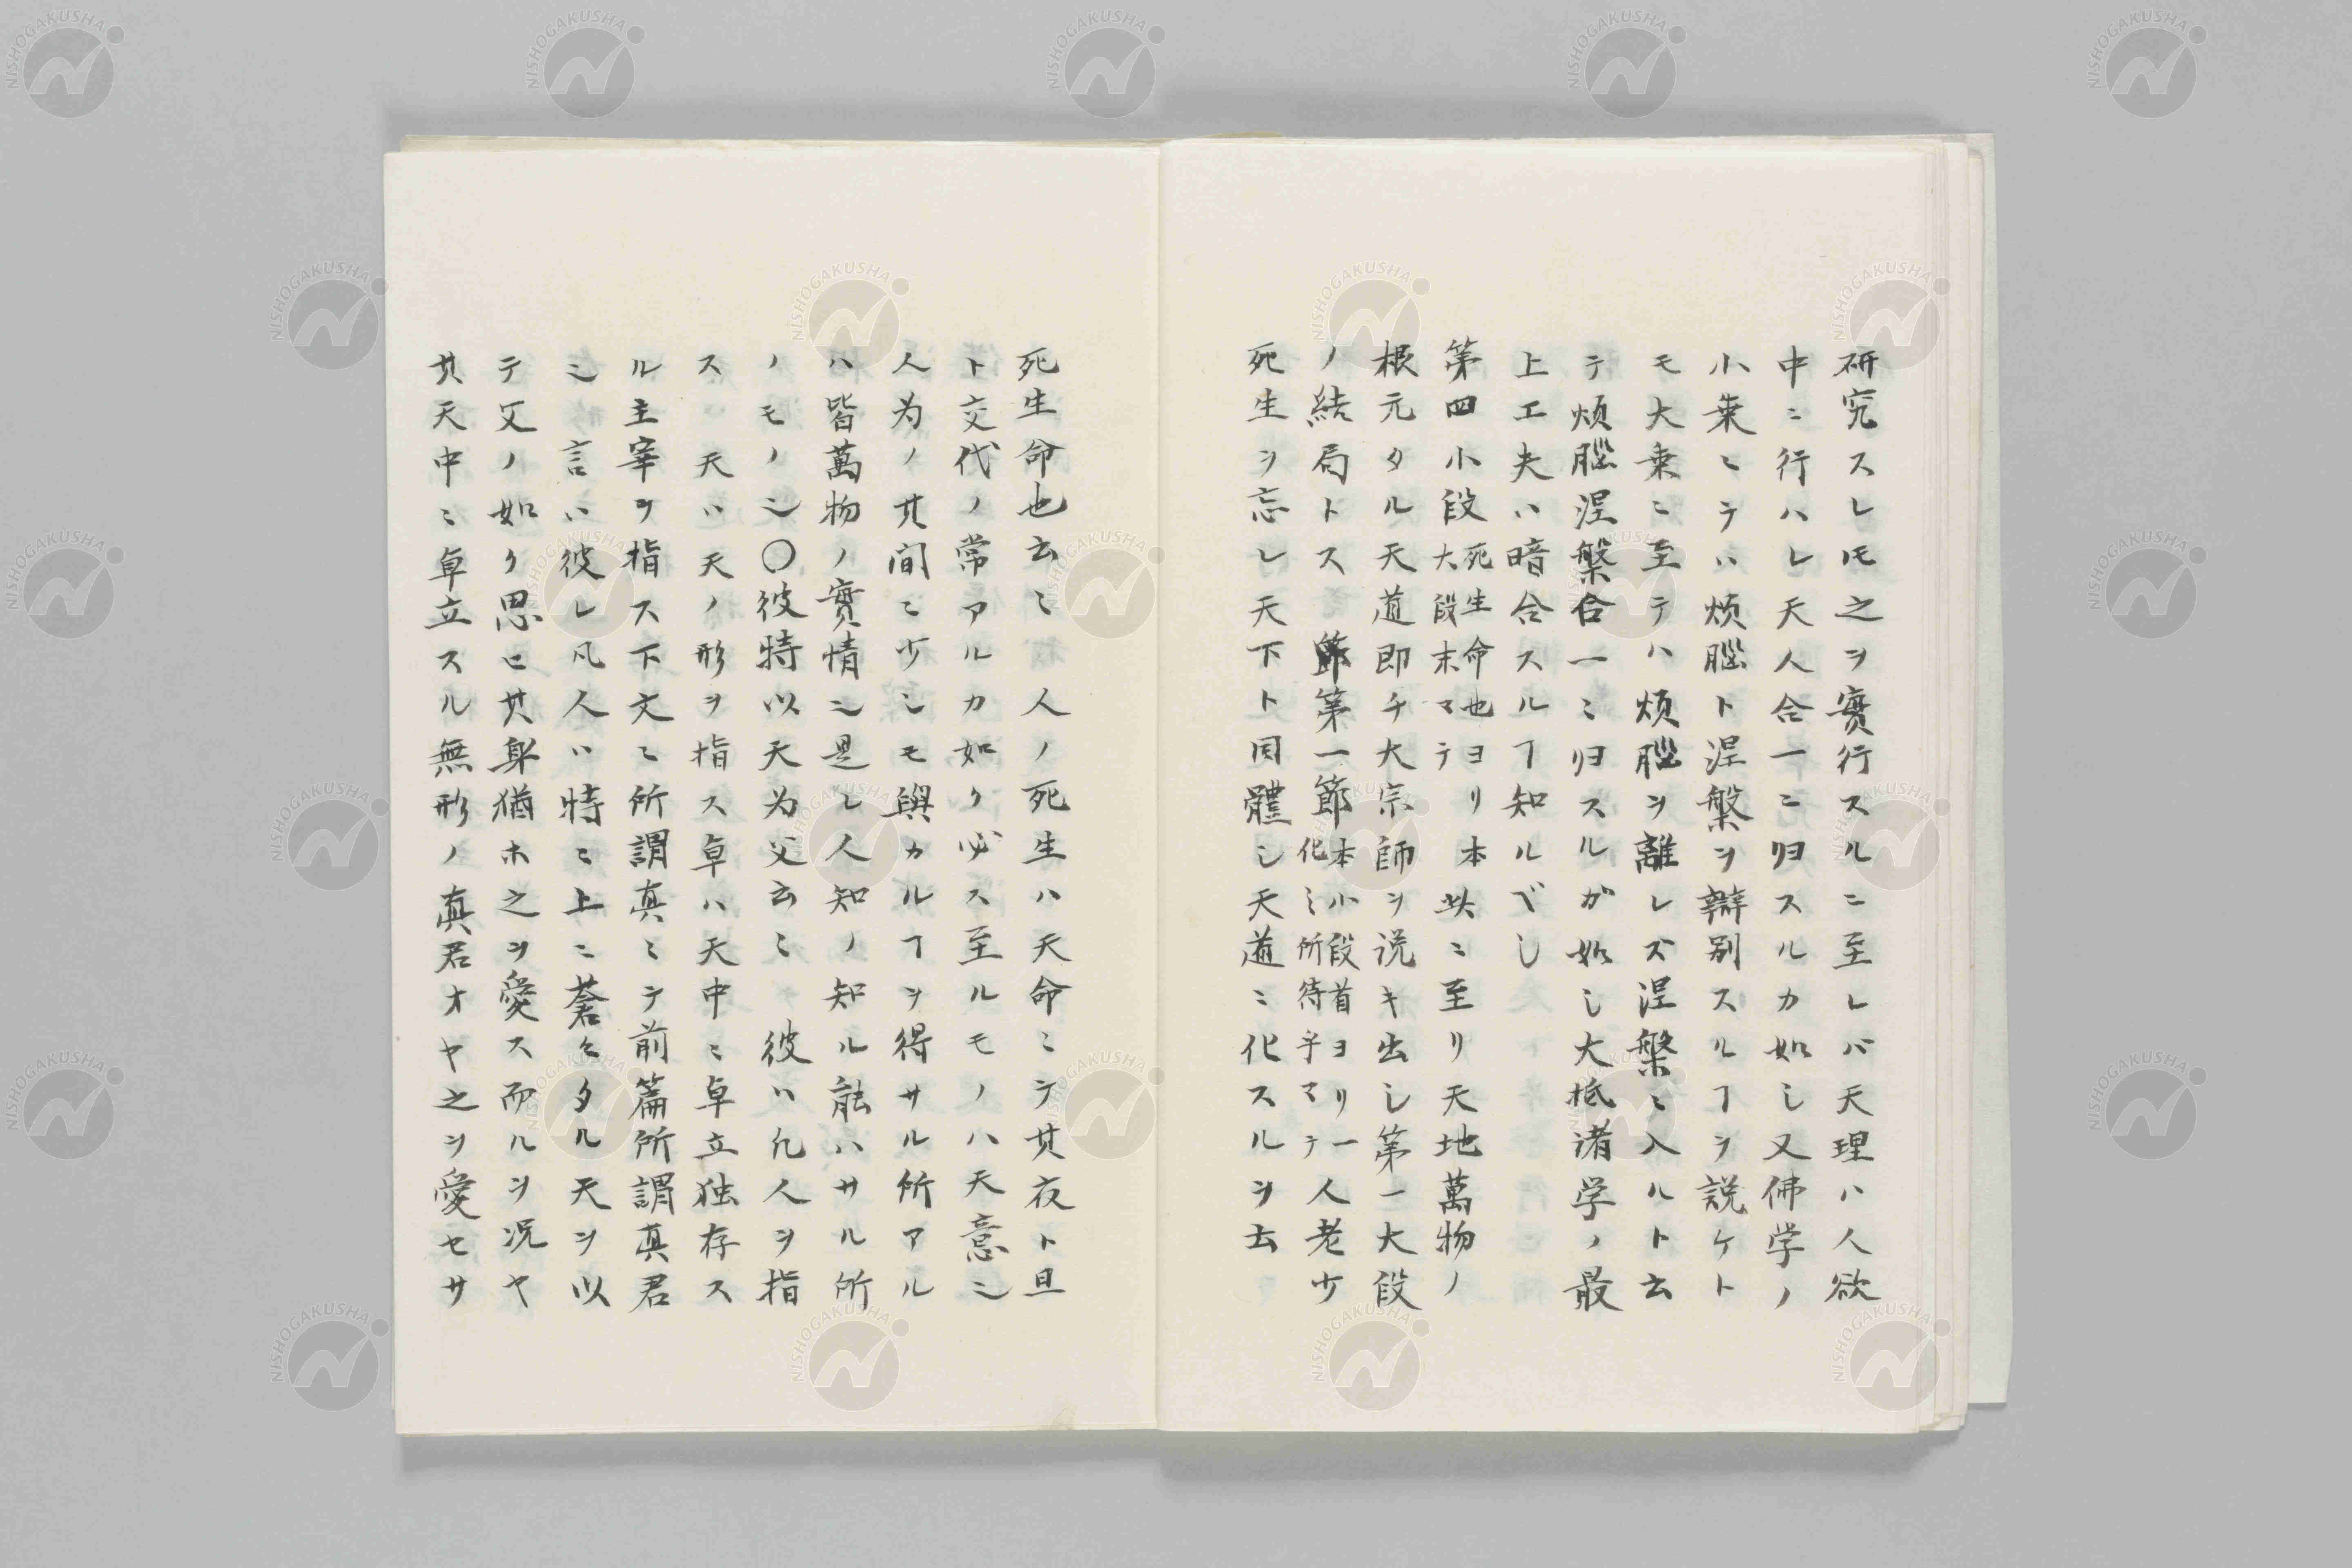 研究スレ𪜈之ヲ實行スルニ至レバ天理ハ人欲
中ニ行ハレ天人合一ニ归スルカ如シ又佛学ノ
小乗ニテハ煩腦ト涅槃ヲ辯別スルヿヲ説ケト
モ大乗ニ至テハ煩腦ヲ離レズ涅槃ニ入ルト云
テ煩腦涅槃合一ニ归スルガ如シ大抵诸学ノ最
上工夫ハ暗合スルヿ知ルベシ
第四小段死生命也ヨリ本
大段末マテ
此ニ至リ天地萬物ノ
根元タル天道即チ大宗師ヲ说キ出シ第一大段
ノ結局トス
第一節本小段首ヨリ一
化ニ所待乎マテ
人老少
死生ヲ忘レ天下ト同體シ天道ニ化スルヲ云
死生命也云ミ 人ノ死生ハ天命ニシテ其夜ト旦
ト交代ノ常アルカ如ク必ス至ルモノハ天意ニ
人为ノ其间ニ少シモ與カルヿヲ得サル所アル
ハ皆萬物ノ實情ニ是レ人知ノ知ル能ハサル所
ノモノニ〇彼特以天为父云ミ 彼ハ凡人ヲ指
ス 天ハ天ノ形ヲ指ス卓ハ天中ニ卓立独存ス
ル主宰ヲ指ス下文ニ所謂真ニテ前篇所謂真君
ニ 言ハ彼レ凡人ハ特ニ上ニ蒼々タル天ヲ以
テ父ノ如ク思ヒ其身猶ホ之ヲ愛ス而ルヲ况ヤ
其天中ニ卓立スル無形ノ真君オヤ之ヲ愛セサ